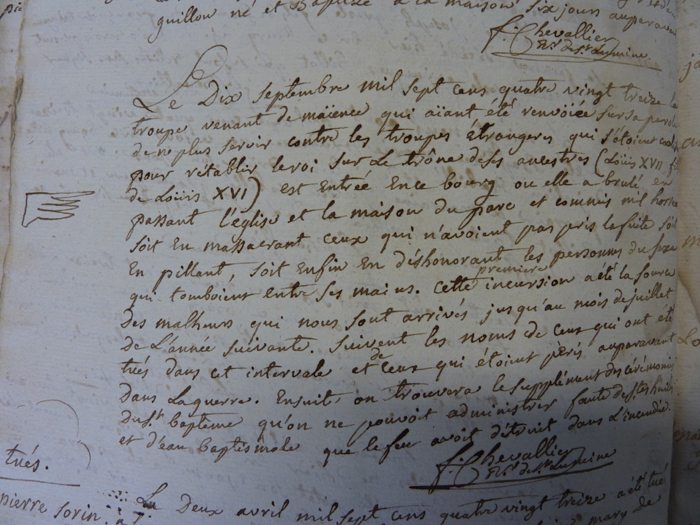 guillon né et Baptizé à la maison six jours auparavant
f. Chevallier
Le Dix septembre mil sept cens quatre vingt treize la
troupe venant de maïence qui aïant été renvoïée sur sa parole
de ne plus servir contre les troupes etrangeres qui s'étoient
pour rétablir le roi sur Le trône de ses ancestres (Loüis XVII f.
de Loüis XVI) est entrée En ce bourg ou elle a brulé en
passant l'église et la maison du parc et commis mil horr
soit En massacrant ceux qui n'avoient pas pris la fuite soit
En pillant, soit enfin En dishonorant les personnes du sexe
qui tomboient entre ses mains. Cette premiere incursion a été la source
Des malheurs qui nous sont arrivés jusqu'au mois de juillet
de L'année suivante. Suivent les noms de Ceux qui ont été
tués dans cet intervale et de ceux qui étoient péris auparavant
Dans La guerre. Ensuit on trouvera le supplément des cérémonies
du St. bapteme qu'on ne pouvoit administrer faute de stes huiles
et d'eau baptismale que le feu avoit détruit dans L'incendie.
f. Chevallier
tués.
Le Deux avril mil sept cens quatre vingt treize a été tué
pierre Sorin